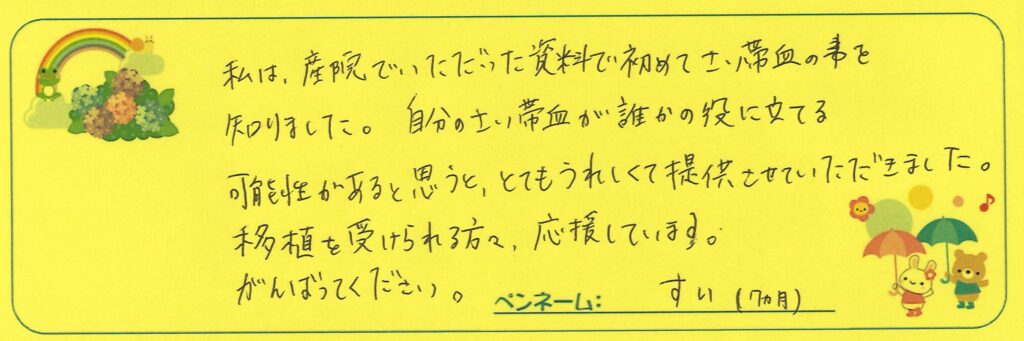 私は、産院でいただいた資料で初めてさい帯血の事を
知りました。 自分のさい帯血が誰かの役に立てる
可能性があると思うと、とてもうれしくて提供させていただきました。
移植を受けられる方々、応援しています。
がんばってください。
ペンネーム: すい (7ヵ月)